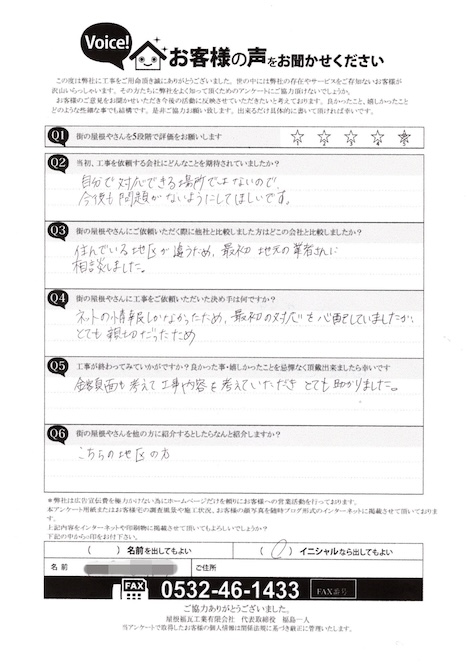 Voice!
お客様の声をお聞かせください
この度は弊社に工事をご用命頂き誠にありがとうございました。世の中には弊社の存在やサービスをご存知ないお客様が
沢山いらっしゃいます。その方たちに弊社をよく知って頂くためのアンケートにご協力頂けないでしょうか。
お客様のご意見をお聞かせいただき今後の活動に反映させていただきたいと考えております。良かったこと、嬉しかったこと
どのような些細な事でも結構です。是非ご協力お願い致します。出来るだけ具体的に書いて頂ければ幸いです。
Q1 街の屋根やさんを5段階で評価をお願いします ☆ ☆ ☆ ☆ ☆
Q2 当初、工事を依頼する会社にどんなことを期待されていましたか？
自分で対応できる場所ではないので、
今後も問題がないようにしてほしいです。
Q3 街の屋根やさんにご依頼いただく際に他社と比較しました方はどこの会社と比較しましたか？
住んでいる地区が違うため、最初 地元の業者さんに
相談しました。
Q4 街の屋根やさんに工事をご依頼いただいた決め手は何ですか？
ネットの情報しかなかったため、最初の対応を心配していましたが、
とても親切だったため
Q5 工事が終わってみていかがですか？良かった事・嬉しかったことを忌憚なく頂戴出来ましたら幸いです
金銭面も考えて工事内容を考えていただき とても助かりました。
Q6 街の屋根やさんを他の方に紹介するとしたらなんと紹介しますか？
こちらの地区の方
＊弊社は広告宣伝費を極力かけない為にホームページだけを頼りにお客様への営業活動を行っております。
本アンケート用紙またはお客様宅の調査風景や施工状況、お客様の顔写真を随時ブログ形式のインターネットに掲載させて頂いておりま
す。
上記内容をインターネットや印刷物に掲載させて頂いてもよろしいでしょうか？
下記の中から○印をお付け下さい。
（　　）名前を出してもよい （○）イニシャルなら出してもよい
名 前 ご住所
FAX 0532-46-1433 FAX番号
ご協力ありがとうございました。
屋根福瓦工業有限会社 代表取締役 福島一人
当アンケートで取得したお客様の個人情報は関係法規に基づき厳正に管理いたします。